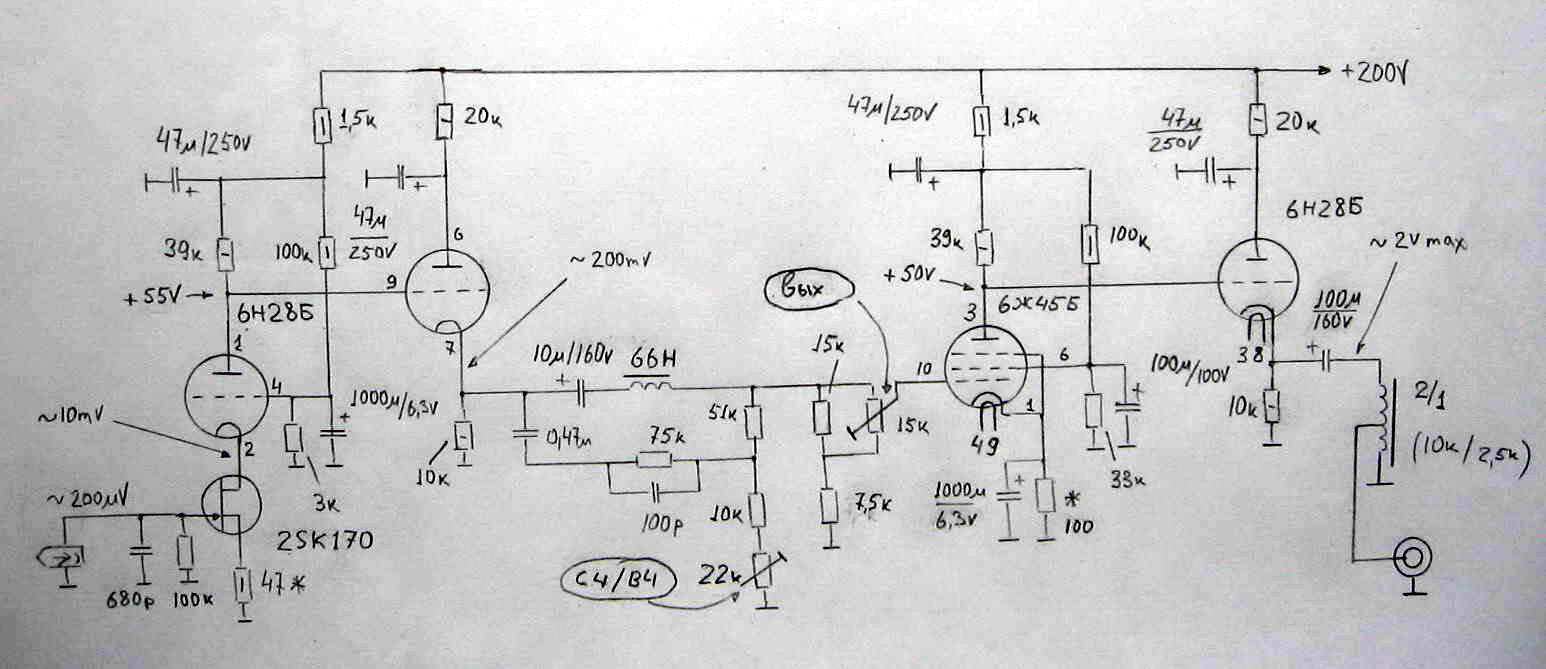 +200V
1,5к
20к
47м/250V
+
+
47м
250V
39к
100к
6
+55V
6Н28Б
9
1
7
~200mV
4
~10mV
2
1000м/6,3V
+
3к
~200мV
2SK170
680р
100к
47*
10к
10м/160V
+
66Н
0,47м
75к
100р
51к
10к
С4/В4
22к
Вых
15к
15к
7,5к
47м/250V
1,5к
+
39к
100к
+50V
3
6Ж45Б
10
6
1
49
1000м
6,3V
+
*
100
33к
100м/100V
+
47м
250V
+
20к
6Н28Б
38
10к
100м
160V
+
~2Vmax
2/1
(10к/2,5к)